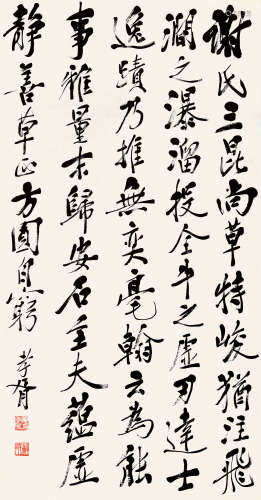 謝氏三昆尚草特峻猶注飛
澗之瀑溜投全牛之虛刃達士
逸蹟乃推無奕毫翰云為能
事雅量末歸安石至夫蘊虛
静善草正方圓自窮
孝胥